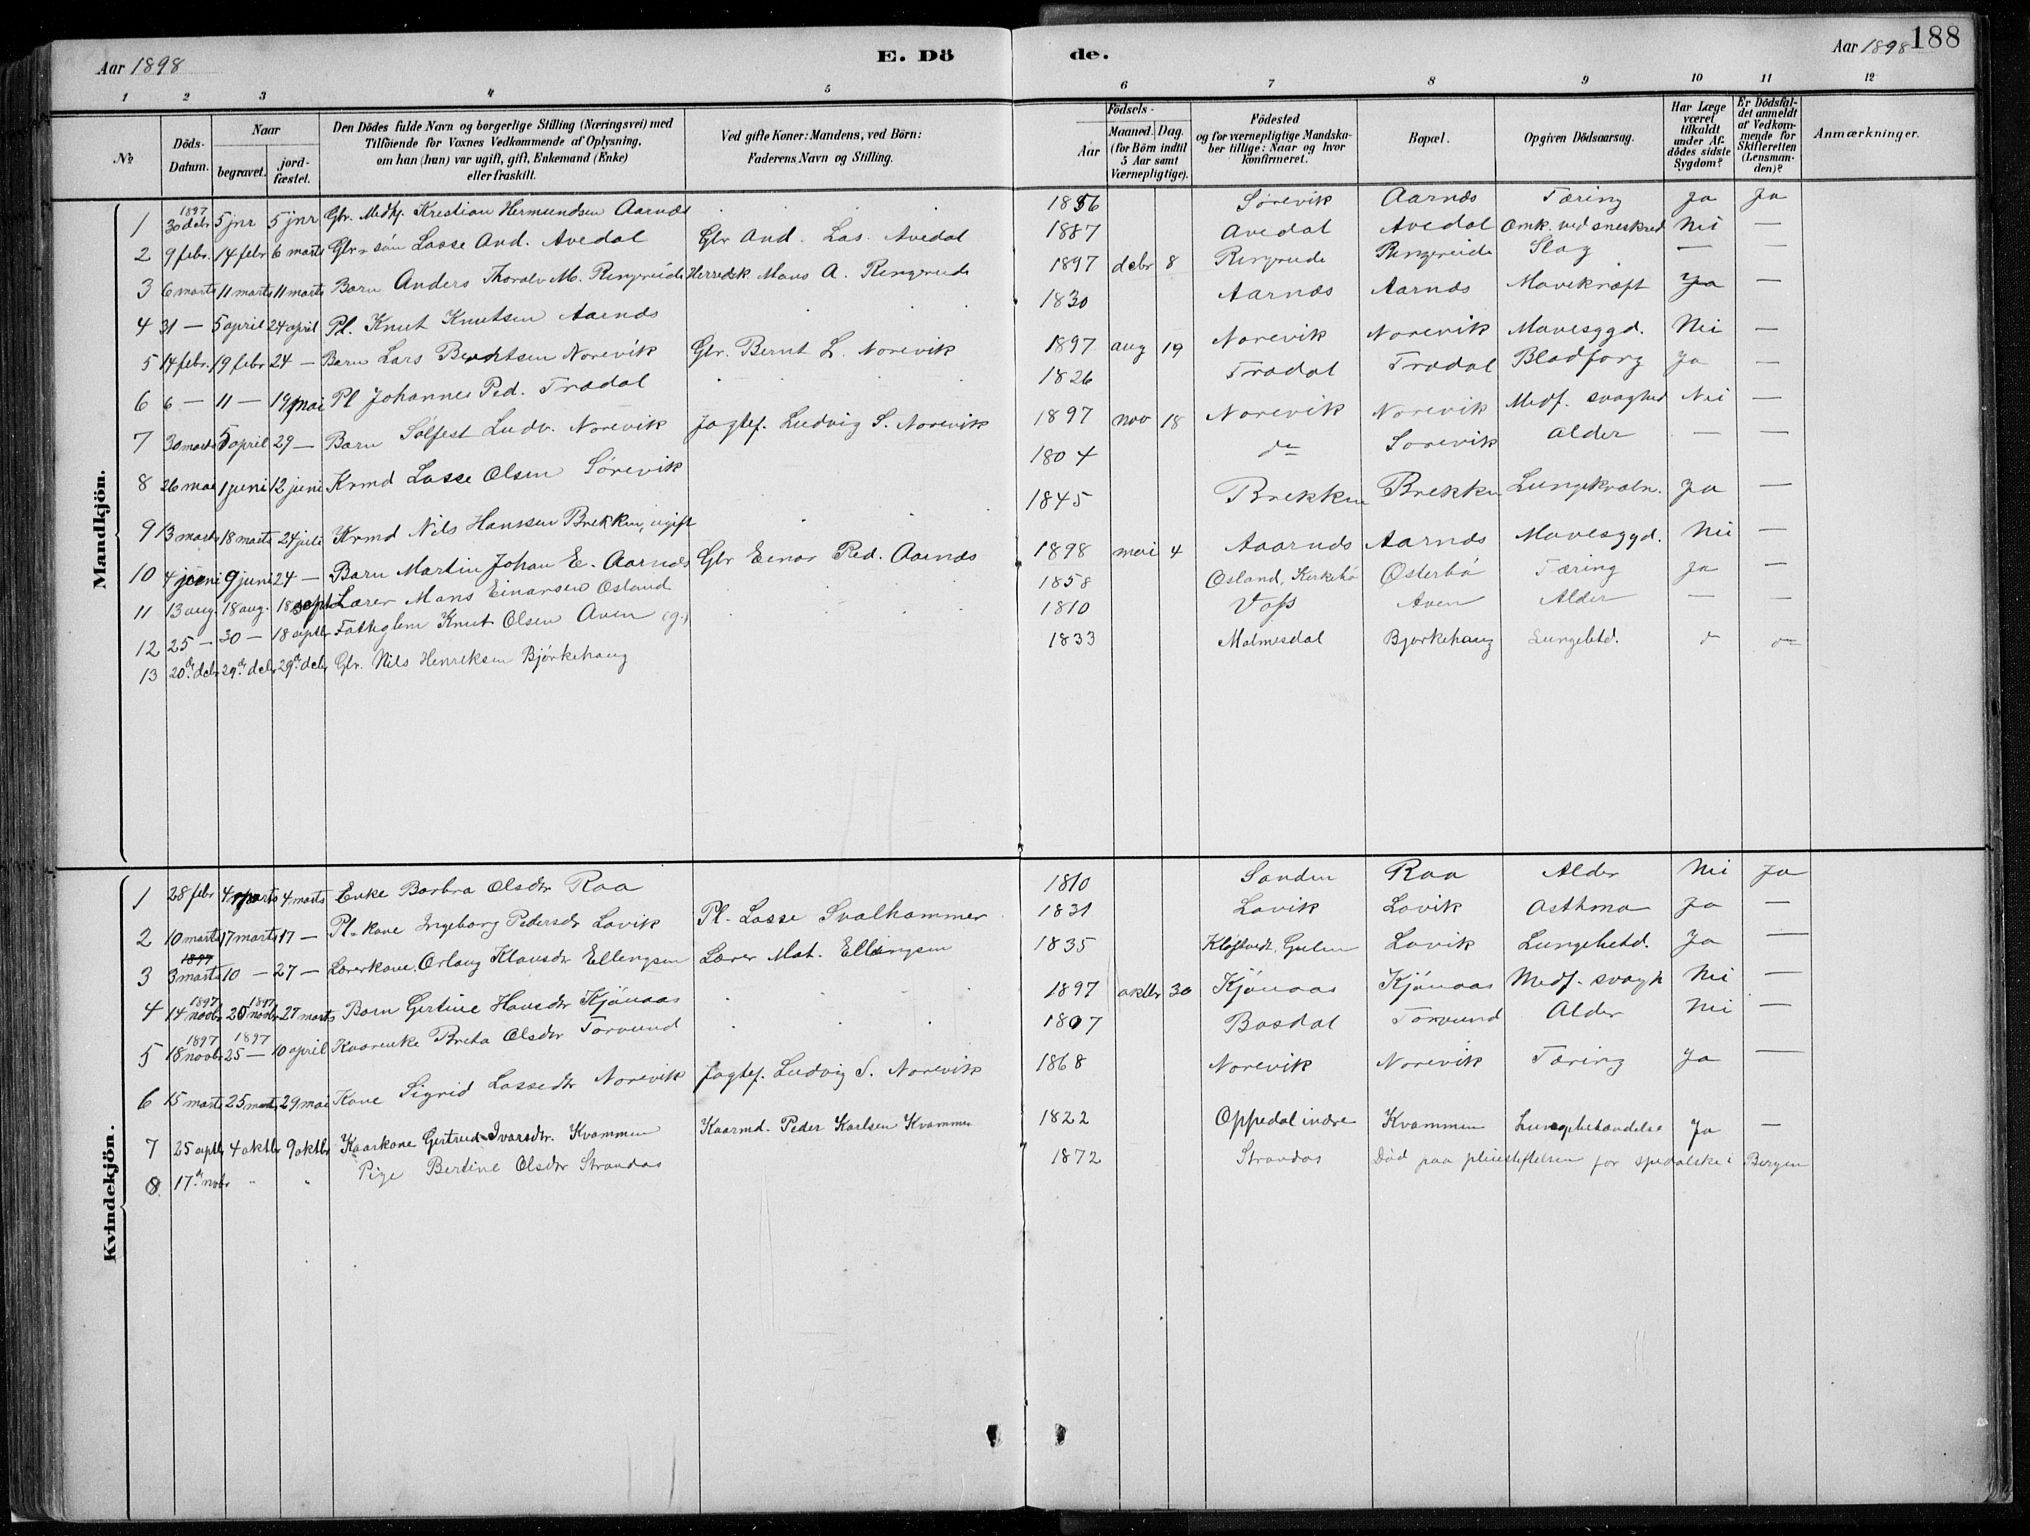 Aar 1898
E. Dö
de.
Aar 1898
188
1 2 3 4 5 6 7 8 9 10 11 12
№
Döds-Datum.
Naar
begravet.
jord-fæstet.
Den Dödes fulde Navn og borgerlige Stilling (Næringsvei) med
Tilföiende for Voxnes Vedkommende af Oplysning,
om han (hun) var ugift, gift, Enkemand (Enke)
eller fraskilt.
Ved gifte Koner: Mandens, ved Börn:
Faderens Navn og Stilling.
Födsels-
Aar
Maaned. Dag.
(for Börn indtil
5 Aar samt
Værnepligtige).
Födested
og for værnepligtige Mandska-
ber tillige: Naar og hvor
konfirmeret.
Bopæl.
Opgiven Dödsaarsag.
Har Læge
været
tilkaldt
under Af-
dödes sidste
Sygdom?
Er Dödsfal-
det anmeldt
af Vedkom-
mende for
Skifteretten
(Lensman-
den)?
Anmærkninger.
Mandkjön.
1 1897 30 debr 5 jnr 5 jnr Gbr. Medhj. Kristian Hermundsen Aarnæs 1856 Sørevik Aarnæs Tæring Ja Ja
2 9 febr. 14 febr 6 marts Gbr-søn Lasse And. Avedal Gbr And. Las. Avedal 1887 Avedal Avedal Omk. ved sneskred Nei —
3 6 marts 11 marts 11 marts Barn Anders Thoralv M. Ringereide Herredsk Mons A. Ringereide 1897 debr 8 Ringereide Ringereide Slag — —
4 31 — 5 april 24 april Pl. Knut Knutsen Aarnæs 1830 Aarnæs Aarnæs Mavekræft Ja —
5 14 febr. 19 febr 24 — Barn Lars Berntsen Norevik Gbr. Bernt L. Norevik 1897 aug 19 Norevik Norevik Mavesygd. Nei —
6 6 — 11 — 19 mai Pl Johannes Ped. Trædal 1826 Trædal Trædal Blodforg Ja —
7 30 marts 5 april 29 — Barn Sølfest Ludv. Norevik Jagtef. Ludvig S. Norevik 1897 nov 18 Norevik Norevik Medf. svaghed Nei —
8 26 mai 1 juni 12 juni Krmd Lasse Olsen Sørevik 1804 do Sorevik Alder — —
9 13 marts 18 marts 24 juli Krmd Nils Hanssen Brekken, ugift 1845 Brekken Brekken Lungekatn. Ja —
10 4 juni 9 juni 24 — Barn Martin Johan E. Aarnæs Gbr Einar Ped. Aarnæs 1898 mai 4 Aaarnæs Aarnæs Mavesygd. Nei —
11 13 aug. 18 aug. 18 sept Lærer Mons Einarsen Osland 1858 Osland, Kirkebø Østerbø Tæring Ja —
12 25 — 30 — 18 septbr Fattiglem Knut Olsen Aven (g.) 1810 Voss Aven Alder — —
13 20de debr 29de debr 29de debr Gbr. Nils Henriksen Bjørkehaug 1833 Malmesdal Bjørkehaug Lungebtd. do do
Kvindekjön.
1 28 febr 4 marts 4 marts Enke Barbra Olsdtr Raa 1810 Sanden Raa Alder Nei Ja
2 10 marts 17 marts 17 — Pl-kone Ingeborg Pedersdtr Lavik Pl. Lasse Svalhammer 1831 Lavik Lavik Asthma Ja —
3 1897 3 marts 10 — 27 — Lærerkone Orlaug Klausdtr Ellingsen Lærer Mat. Ellingsen 1835 Kløftvedt, Gulen Lavik Lungebetd. Ja —
4 1897 14 novbr 1897 20 novbr 27 marts Barn Gertine Hansdtr Kjønaas 1897 oktbr 30 Kjønaas Kjønaas Medf. svagh Nei —
5 1897 18 novbr 1897 25 — 10 april Kaarenke Brita Olsdtr Torvund 1807 Basdal Torvund Alder Nei —
6 15 marts 25 marts 29 mai Kone Sigrid Lassedtr Norevik Jagtef. Ludvig S. Norevik 1868 Norevik Norevik Tæring Ja —
7 25 septbr 4 oktbr 9 oktbr Kaarkone Gertrud Ivarsdtr. Kvammen Kaarmd. Peder Karlsen Kvammen 1822 Oppedal indre Kvammen Lungebetændelse Ja —
8 17de novbr " " Pige Bertine Olsdtr Strandos 1872 Strandos Død paa pleiestiftelsen for spedalske i Bergen